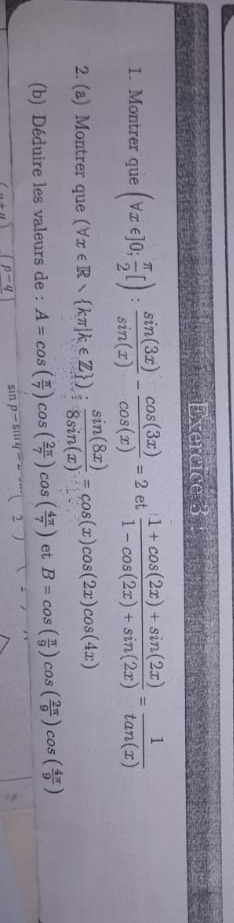 Exercice 3 :
1. Montrer que (∀x ϵ]0; π/2[) : sin(3x)/sin(x) − cos(3x)/cos(x) = 2 et (1 + cos(2x) + sin(2x))/(1 − cos(2x) + sin(2x)) = 1/tan(x)
2. (a) Montrer que (∀x ϵ ℝ ∖ {kπ|k ϵ ℤ}) : sin(8x)/8sin(x) = cos(x)cos(2x)cos(4x)
(b) Déduire les valeurs de : A = cos(π/7)cos(2π/7)cos(4π/7) et B = cos(π/9)cos(2π/9)cos(4π/9)